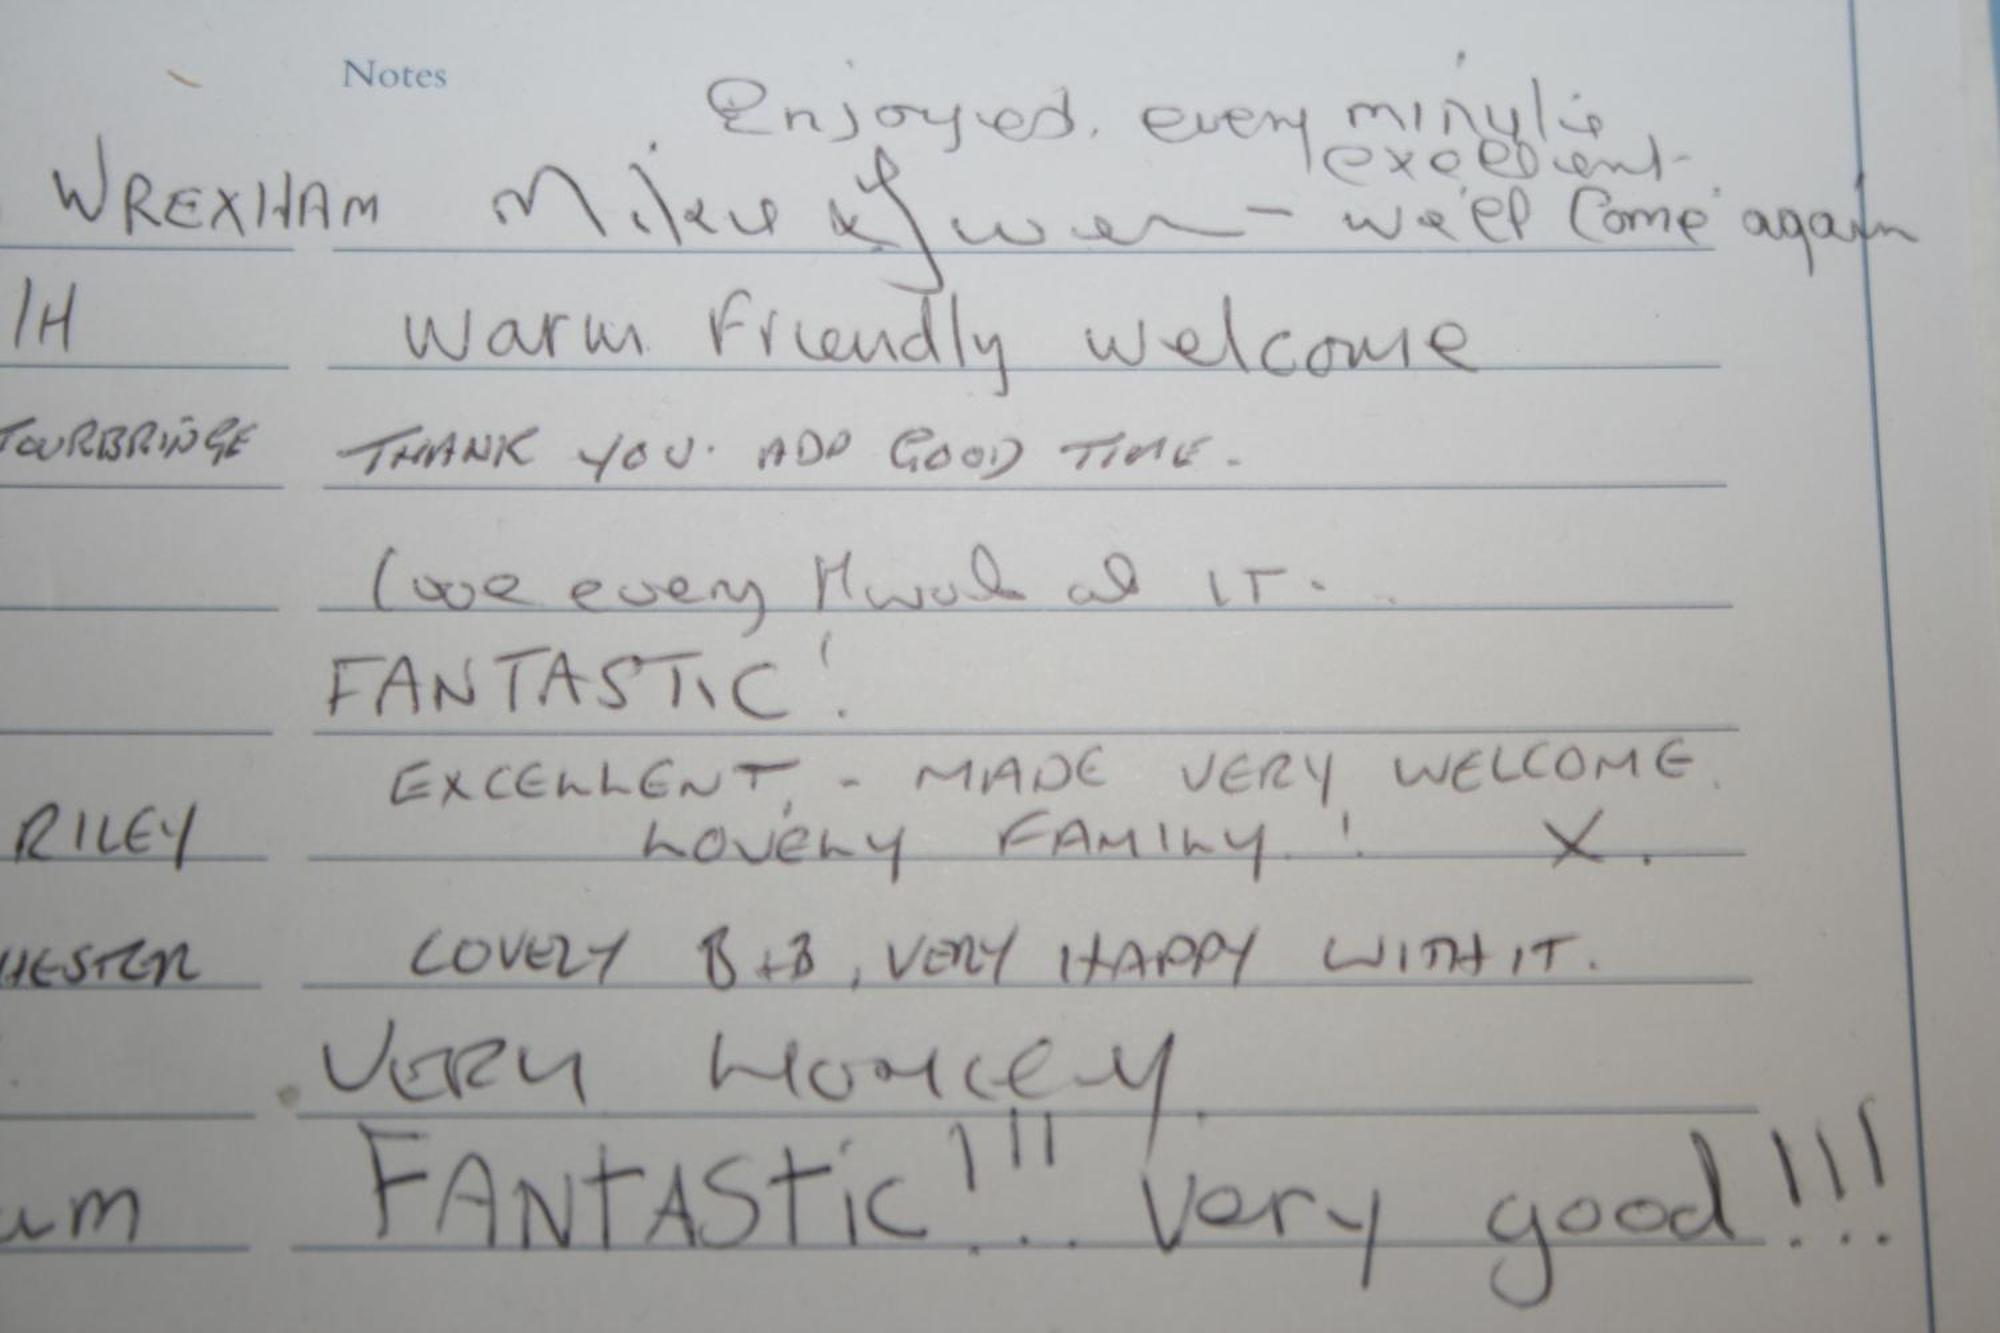 Notes
Enjoyed, every
excellent
WREXHAM Mike & Gwen - we'll Come again
IH Warm Friendly welcome
TOURBRIDGE THANK YOU. ADD GOOD TIME.
love every IT.
FANTASTIC!
EXCELLENT, - MADE VERY WELCOME.
RILEY LOVELY FAMILY! X.
HESTER LOVELY B+B, VERY HAPPY WITH IT.
VERY HOMELEY.
am FANTAStiC!!! Very good!!!